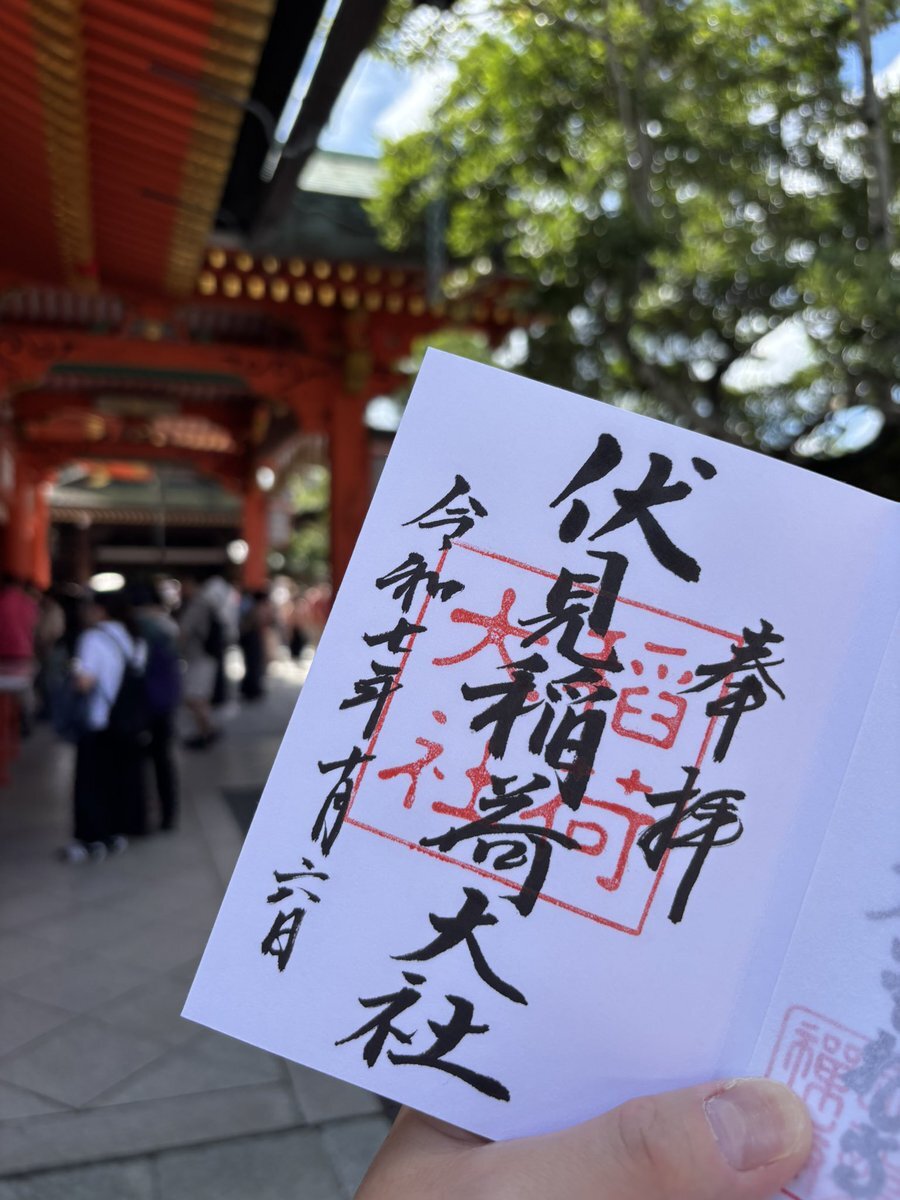 奉拝
伏見稲荷大社
令和七年十月六日
稻荷
大社
禪